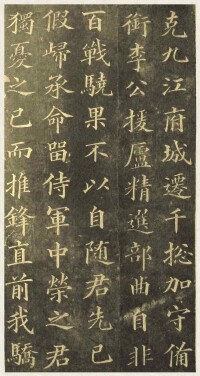 克九江府城遷千總加守備
銜李公援廬精選部曲自非
百戰驍果不以自随君先已
假歸承命留侍軍中榮之君
獨憂之已而推鋒直前我驕